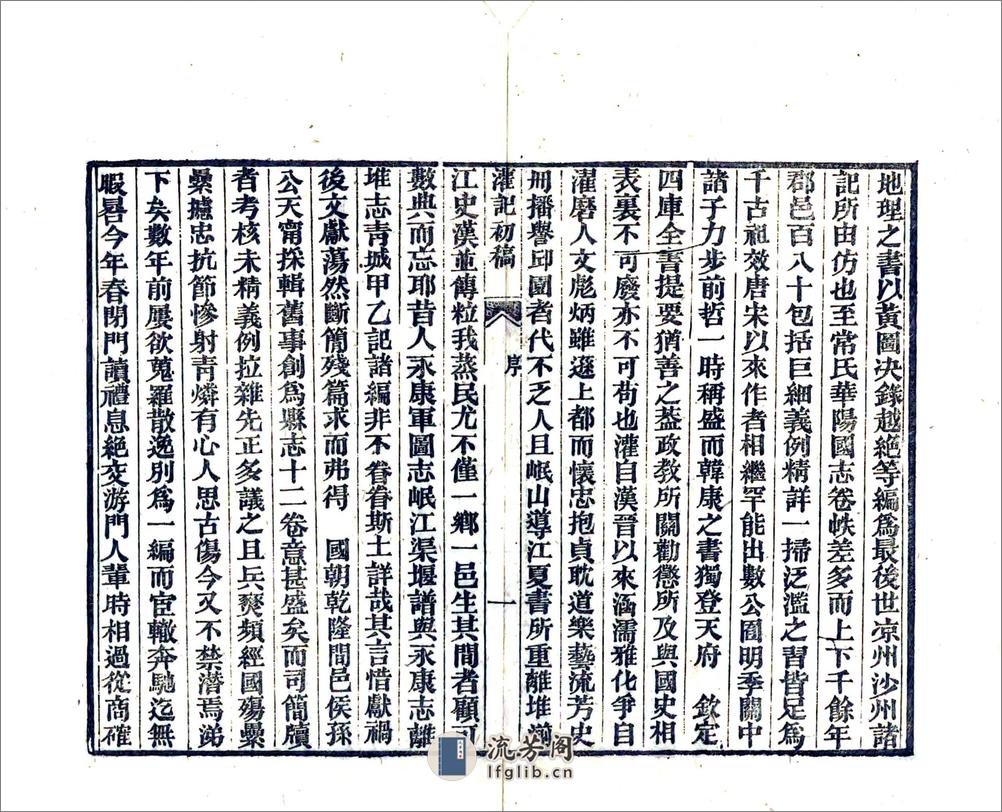 地理之書以黃圖決錄越絕等編爲最後世凉州沙州諸
記所由仿也至常氏華陽國志卷帙差多而上下千餘年
郡邑百八十包括巨細義例精詳一掃泛濫之習皆足爲
千古祖效唐宋以來作者相繼罕能出數公囿明季關中
諸子力步前哲一時稱盛而韓康之書獨登天府　欽定
四庫全書提要猶善之葢政教所關勸懲所及與國史相
表裏不可廢亦不可苟也灌自漢晉以來涵濡雅化爭自
濯磨人文彪炳雖遜上都而懷忠抱貞耽道樂藝流芳史
冊播譽邱園者代不乏人且岷山導江夏書所重離堆湔
灌記初稿　序　一
江史漢並傳粒我蒸民尤不僅一鄉一邑生其間者顧可
數典而忘耶昔人永康軍圖志岷江渠堰譜與永康志離
堆志靑城甲乙記諸編非不眷眷斯土詳哉其言惜獻禍
後文獻蕩然斷簡殘篇求而弗得　國朝乾隆間邑侯孫
公天甯採輯舊事創爲縣志十二卷意甚盛矣而司簡牘
者考核未精義例拉雜先正多議之且兵燹頻經國殤纍
纍攄忠抗節慘射靑燐有心人思古傷今又不禁潸焉涕
下矣數年前屢欲蒐羅散逸別爲一編而宦轍奔馳迄無
暇晷今年春閉門讀禮息絕交游門人輩時相過從商確
流芳阁
lfglib.cn